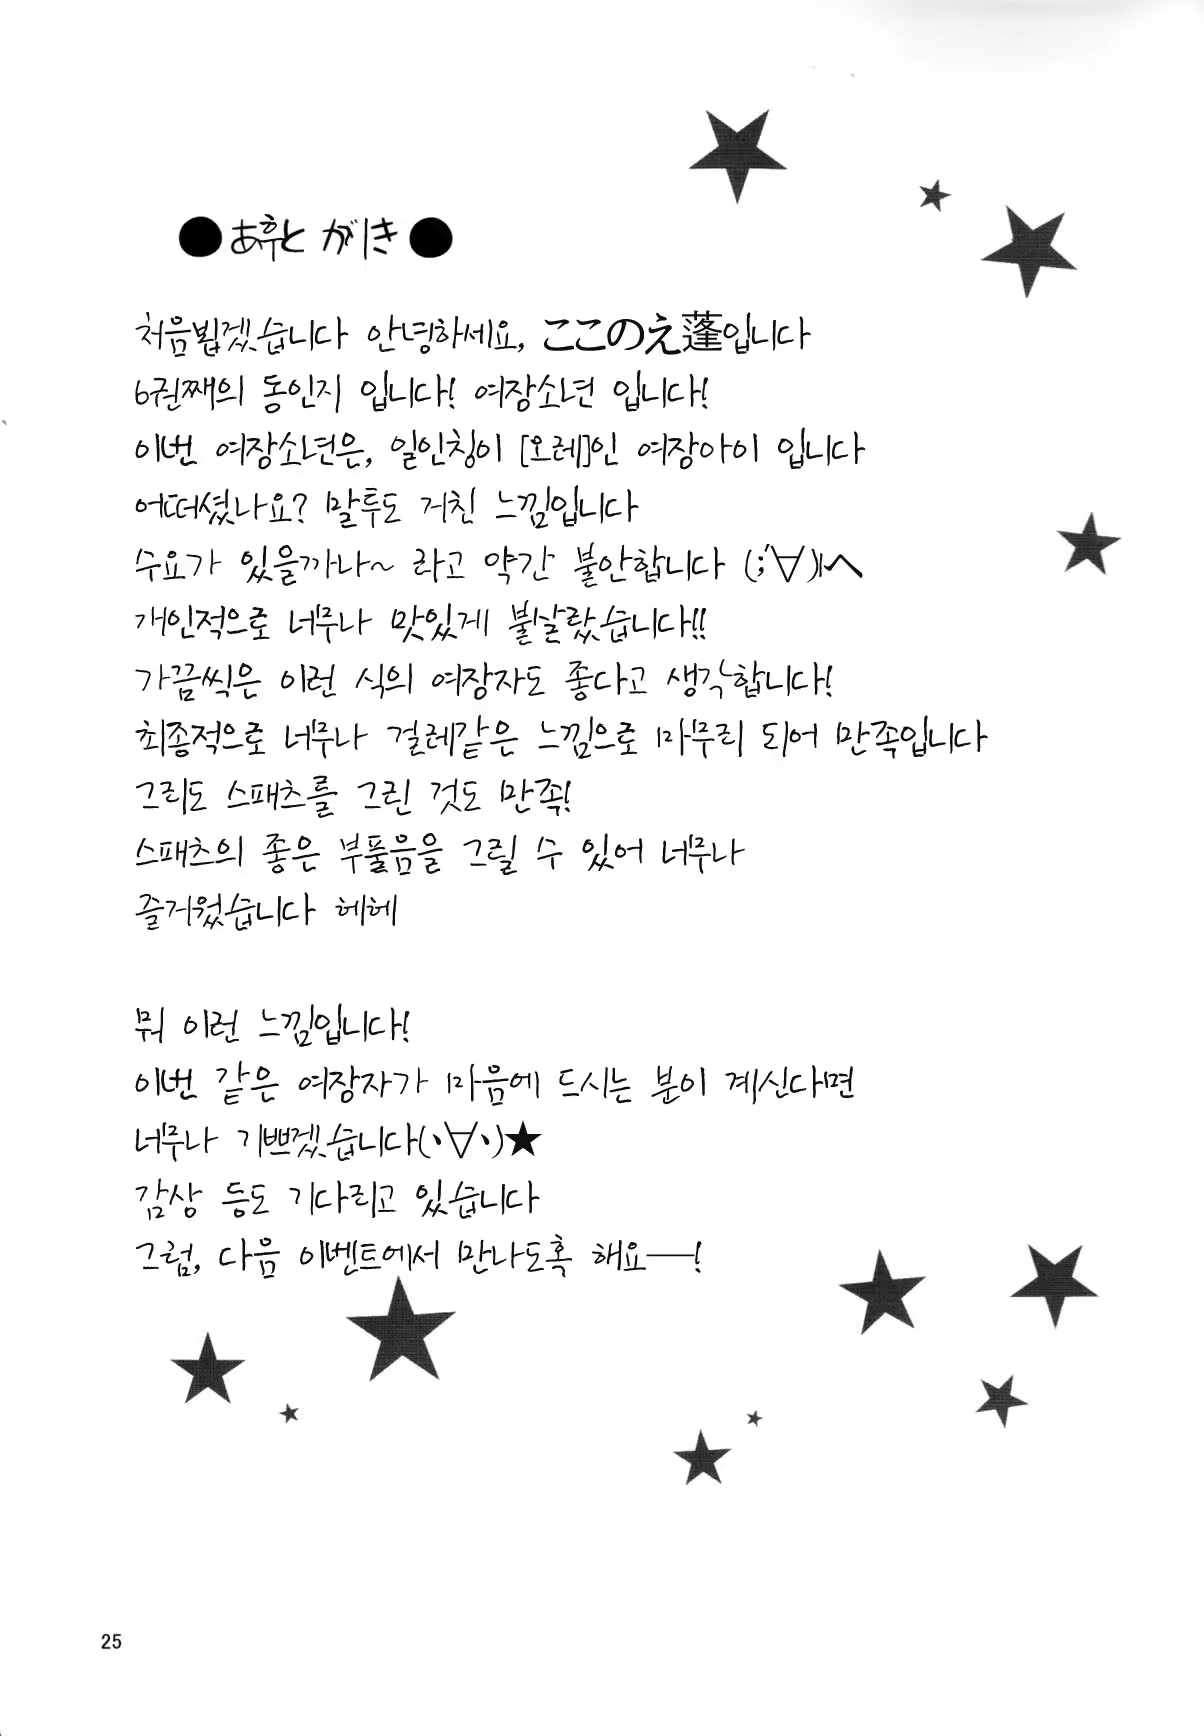 ●あ후とがき●
처음뵙겠습니다 안녕하세요, ここのえ蓬입니다
6권째의 동인지 입니다! 여장소년 입니다!
이번 여장소년은, 일인칭이 [오레]인 여장아이 입니다
어떠셨나요? 말투도 거친 느낌입니다
수요가 있을까나~ 라고 약간 불안합니다 (;´∀`)ﾍ
개인적으로 너무나 맛있게 불살랐습니다!!
가끔씩은 이런 식의 여장자도 좋다고 생각합니다!
최종적으로 너무나 걸레같은 느낌으로 마무리 되어 만족입니다
그리도 스패츠를 그린 것도 만족!
스패츠의 좋은 부풀음을 그릴 수 있어 너무나
즐거웠습니다 헤헤
뭐 이런 느낌입니다!
이번 같은 여장자가 마음에 드시는 분이 계신다면
너무나 기쁘겠습니다(､∀､)★
감상 등도 기다리고 있습니다
그럼, 다음 이벤트에서 만나도록 해요──!
25